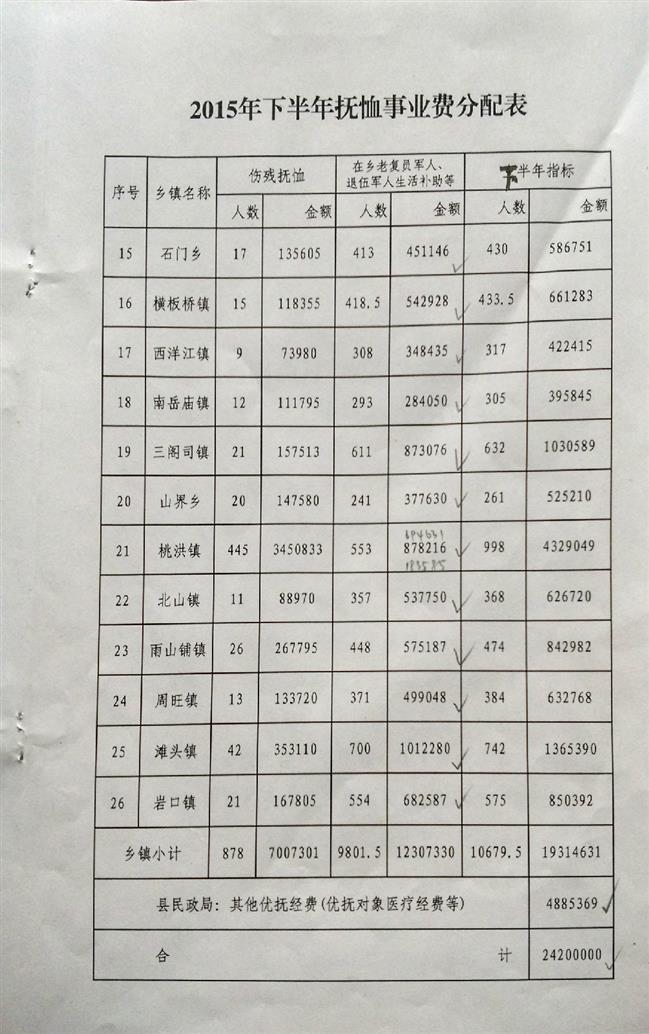 2015年下半年抚恤事业费分配表
序号 乡镇名称 伤残抚恤 在乡老复员军人、退伍军人生活补助等 下半年指标
人数 金额 人数 金额 人数 金额
15 石门乡 17 135605 413 451146 430 586751
16 横板桥镇 15 118355 418.5 542928 433.5 661283
17 西洋江镇 9 73980 308 348435 317 422415
18 南岳庙镇 12 111795 293 284050 305 395845
19 三阁司镇 21 157513 611 873076 632 1030589
20 山界乡 20 147580 241 377630 261 525210
694631
21 桃洪镇 445 3450833 553 878216 998 4329049
183585
22 北山镇 11 88970 357 537750 368 626720
23 雨山铺镇 26 267795 448 575187 474 842982
24 周旺镇 13 133720 371 499048 384 632768
25 滩头镇 42 353110 700 1012280 742 1365390
26 岩口镇 21 167805 554 682587 575 850392
乡镇小计 878 7007301 9801.5 12307330 10679.5 19314631
县民政局：其他优抚经费(优抚对象医疗经费等) 4885369
合 计 24200000